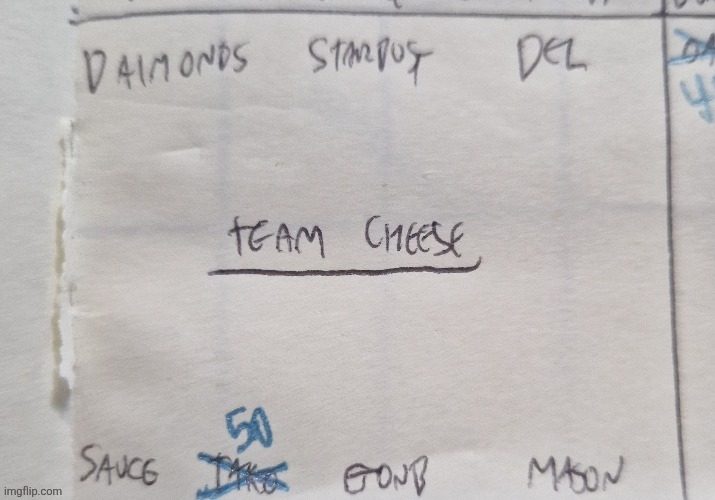 DAIMONDS STARDUST DEL
TEAM CHEESE
50
SAUCE MASON
imgflip.com